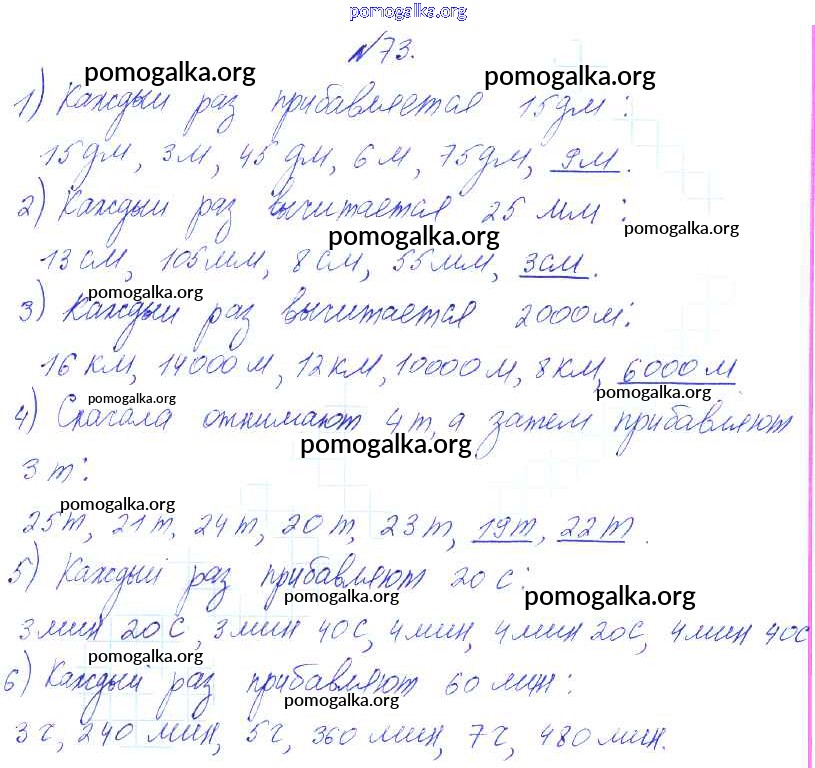 pomogalka.org
№73.
pomogalka.org pomogalka.org
1) Каждый раз прибавляется 15дм:
15дм, 3м, 45дм, 6м, 75дм, 9м.
2) Каждый раз вычитается 25 мм:
pomogalka.org pomogalka.org
13см, 105мм, 8см, 55мм, 3см.
pomogalka.org
3) Каждый раз вычитается 2000м:
16 км, 14000м, 12км, 10000м, 8км, 6000м
pomogalka.org pomogalka.org
4) Сначала отнимают 4т, а затем прибавляют
pomogalka.org
3т:
pomogalka.org
25т, 21т, 24т, 20т, 23т, 19т, 22т.
5) Каждый раз прибавляют 20с:
pomogalka.org pomogalka.org
3мин 20с, 3мин 40с, 4мин, 4мин 20с, 4мин 40с
pomogalka.org
6) Каждый раз прибавляют 60 мин:
pomogalka.org
3ч, 240 мин, 5ч, 360мин, 7ч, 480мин.
pomogalka.org